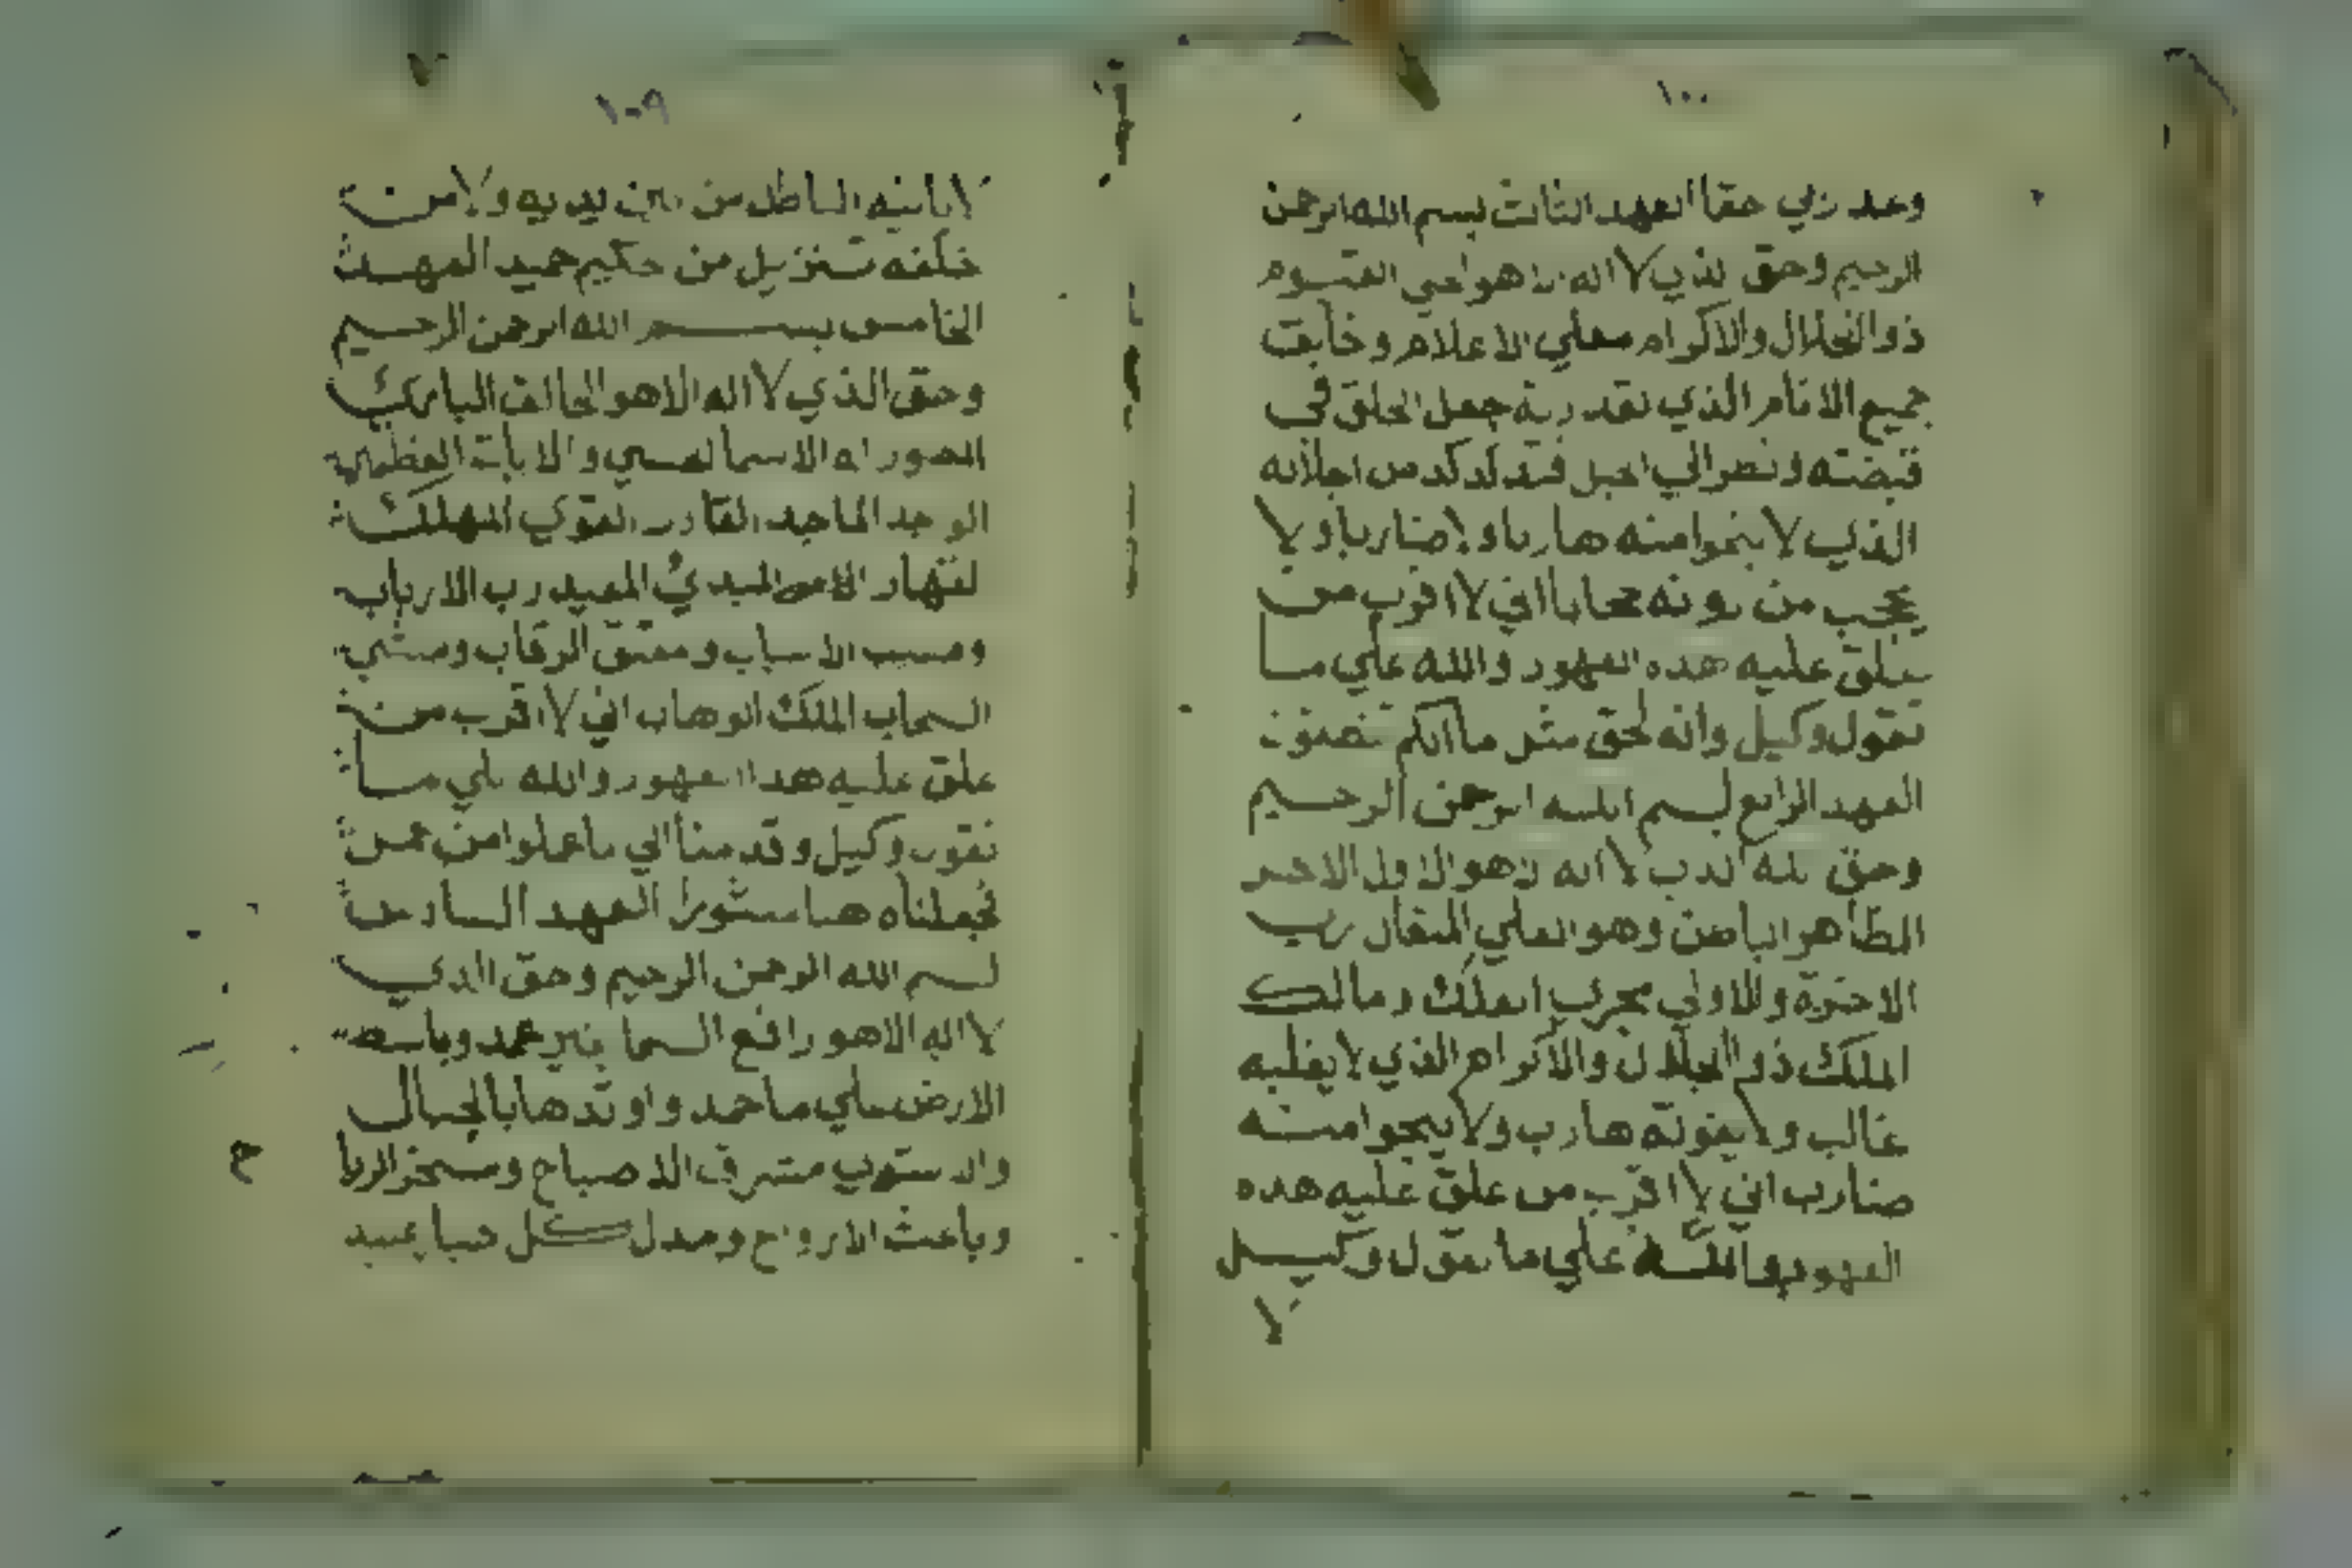 ١٠٠
وعد ربي حقا العهد الثالث بسم الله الرحمن
الرحيم وحق الذي لا اله الا هو الحي القيوم
ذو الجلال والاكرام معلي الاعلام وخالق
جميع الانام الذي بقدرته جعل الخلق في
قبضته ونظر الي الجبل فتدكدك من اجلاله
الذي لا ينجوا منه هاربا ولا ضاربا ولا
يحجب من دونه حجابا اني لا اقرب من
يعلق عليه هده العهود والله علي ما
نقول وكيل وانه لحق مثل ما انكم تنطقون
العهد الرابع بسم الله الرحمن الرحيم
وحق الله الدي لا اله الا هو الاول الاخر
الظاهر الباطن وهو العلي المتعال رب
الاخرة والاولي مجري الفلك ومالك
الملك ذو الجلال والاكرام الذي لا يغلبه
غالب ولا يفوته هارب ولا ينجوا منه
ضارب اني لا اقرب من علق عليه هده
العهود والله علي ما نقول وكيل
لا
١٠٩
لا ياتيه الباطل من بين يديه ولا من
خلفه تنزيل من حكيم حميد العهد
الخامس بسم الله الرحمن الرحيم
وحق الذي لا اله الا هو الخالق الباري
المصور له الاسما الحسني والايات العظمي
الوحد الماجد القادر القوي المهلك
القهار المبدي المعيد رب الارباب
ومسبب الاسباب ومعتق الرقاب ومنشي
السحاب الملك الوهاب اني لا اقرب من
علق عليه هدا العهود والله علي ما
نقول وكيل وقدمنا الي ما عملوا من عمل
فجعلناه هبا منثورا العهد السادس
بسم الله الرحمن الرحيم وحق الدي
لا اله الا هو رافع السما بغير عمد وباسط
الارض علي ما جمد واوتدها بالجبال
مشرق الاصباح ومسخر الريا
وباعث الارواح ومدل كل جبار عنيد